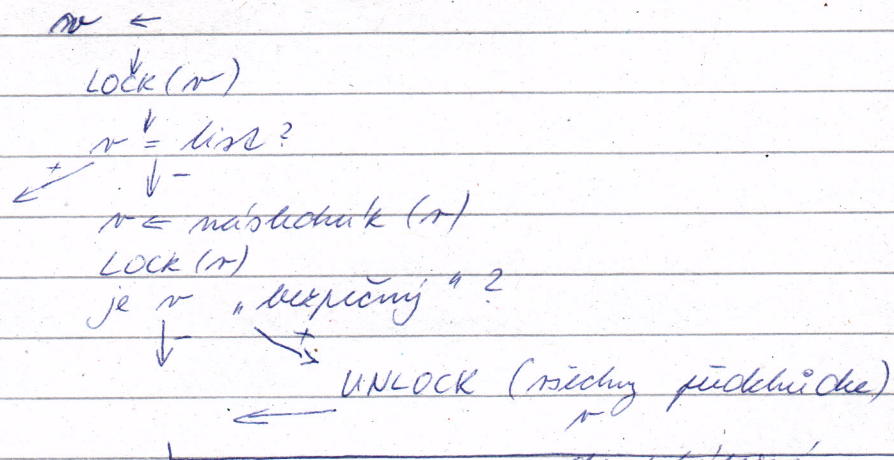 v ←
LOCK(v)
v = list?
+ −
v ← následník (v)
LOCK(v)
je v „bezpečný“ ?
− +
UNLOCK (všechny předchůdce)
v